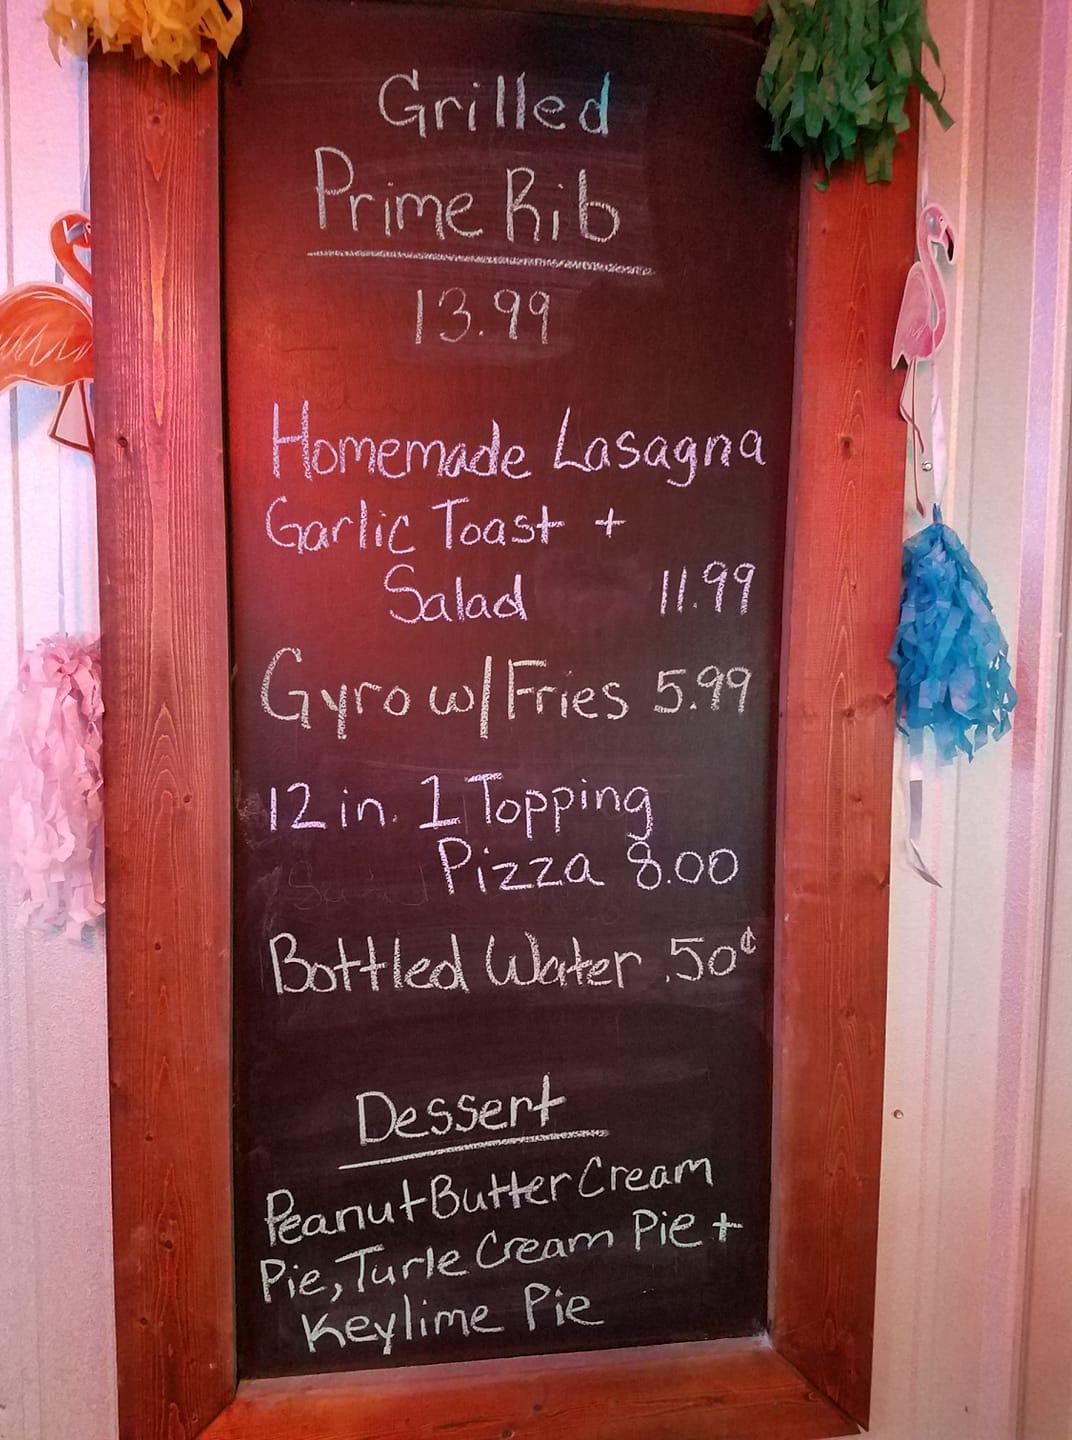 Grilled
Prime Rib
13.99
Homemade Lasagna
Garlic Toast +
Salad 11.99
Gyro w/ Fries 5.99
12 in. 1 Topping
Pizza 8.00
Bottled Water .50¢
Dessert
Peanut Butter Cream
Pie, Turle Cream Pie +
Keylime Pie